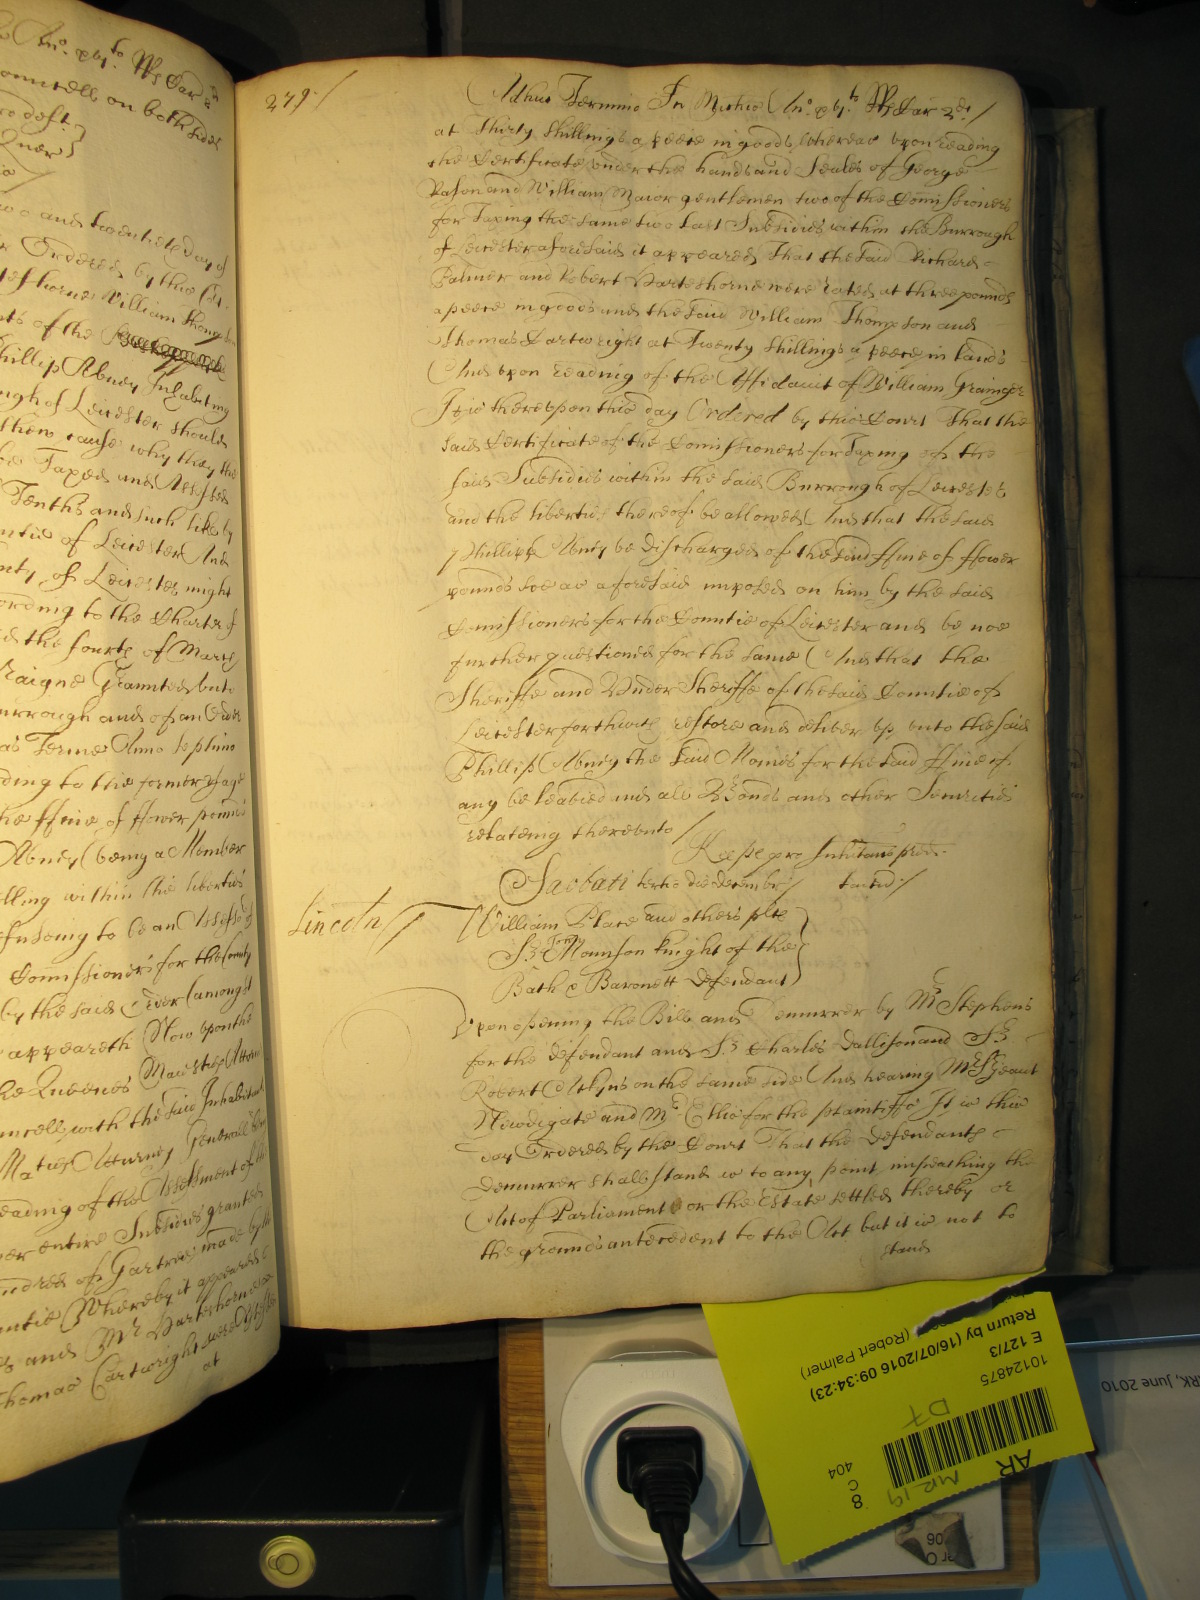 to Ano. xvjto. Rs Car 2di
Councell on both sides
deft.
Quer
two and twentieth day of
Ordered by this Court
Hartshorne William Thompson
of the
Phillip Abney Inhabiting
Burrough of Leicester should
shew cause why they should
be Taxed and Assessed
Tenths and such like by
Countie of Leicester And
County of Leicester might
according to the Charter of
the fourth of March
Raigne Graunted unto
Burrough and of an Order
Terme Anno septimo
according to the former usage
the ffine of ffower pounds
Abney (being a Member
dwelling within the liberties
refuseing to be an Assessor
Commissioners for the County
by the said Order (amongst
appeareth Now upon the
the Queenes Maiesties Attorney
Councell with the said Inhabitants
Maties Atturney Generall
reading of the Assessment of the
entire Subsidies granted
hundred of Gartree made by the
Countie Whereby it appeared
and Mr Harteshorne
Thomas Cartwright were Assessed
at
279/
Adhuc Termino Sci Michis Ano. xvjto. Rs Car 2di/
at Thirty shillings a peece in goods, whereas upon reading
the Certificate under the hands and Seales of George
Rason and William Maior gentlemen two of the Comissioners
for Taxing the same two last Subsidies within the Burrough
of Leicester aforesaid it appeared That the said Richard
Palmer and Robert Harteshorne were rated at three pounds
a peece in goods and the said William Thompson and
Thomas Cartwright at Twenty shillings a peece in lands
And upon reading of the Affidavit of William Grainger
It is thereupon this day Ordered by this Court That the
said Certificate of the Comissioners for Taxing of the
said Subsidies within the said Burrough of Leicester
and the liberties thereof be allowed And that the said
Phillipp Abney be discharged of the said ffine of ffower
pounds soe as aforesaid imposed on him by the said
Comissioners for the Countie of Leicester and be noe
further questioned for the same And that the
Sheriffe and Under Sheriffe of the said Countie of
Leicester forthwith restore and deliver up unto the said
Phillip Abney the said Monies for the said ffine if
any be leavied and all Bonds and other Securities
relateing thereunto/
pro Inhitans pred.
Sabbati tertio die Decembr/
Lincoln/ William Place and others plts
Sr John Mounson knight of the
Bath & Baronett Defendant
Upon opening the Bill and Demurrer by Mr Stephens
for the defendant and Sr Charles Dallison and Sr
Robert Atkyns on the same side And hearing Mr Serjeant
Newdigate and Mr Ellis for the plaintiffs It is this
day Ordered by the Court That the Defendants
demurrer shall stand as to any point impeaching the
Act of Parliament or the Estate settled thereby or
the grounds antecedent to the Act but it is not to
stand
AR
MR 19
8
C
404
D7
10124875
E 127/3
Return by (16/07/2016 09:34:23)
(Robert Palmer)
RK, June 2010